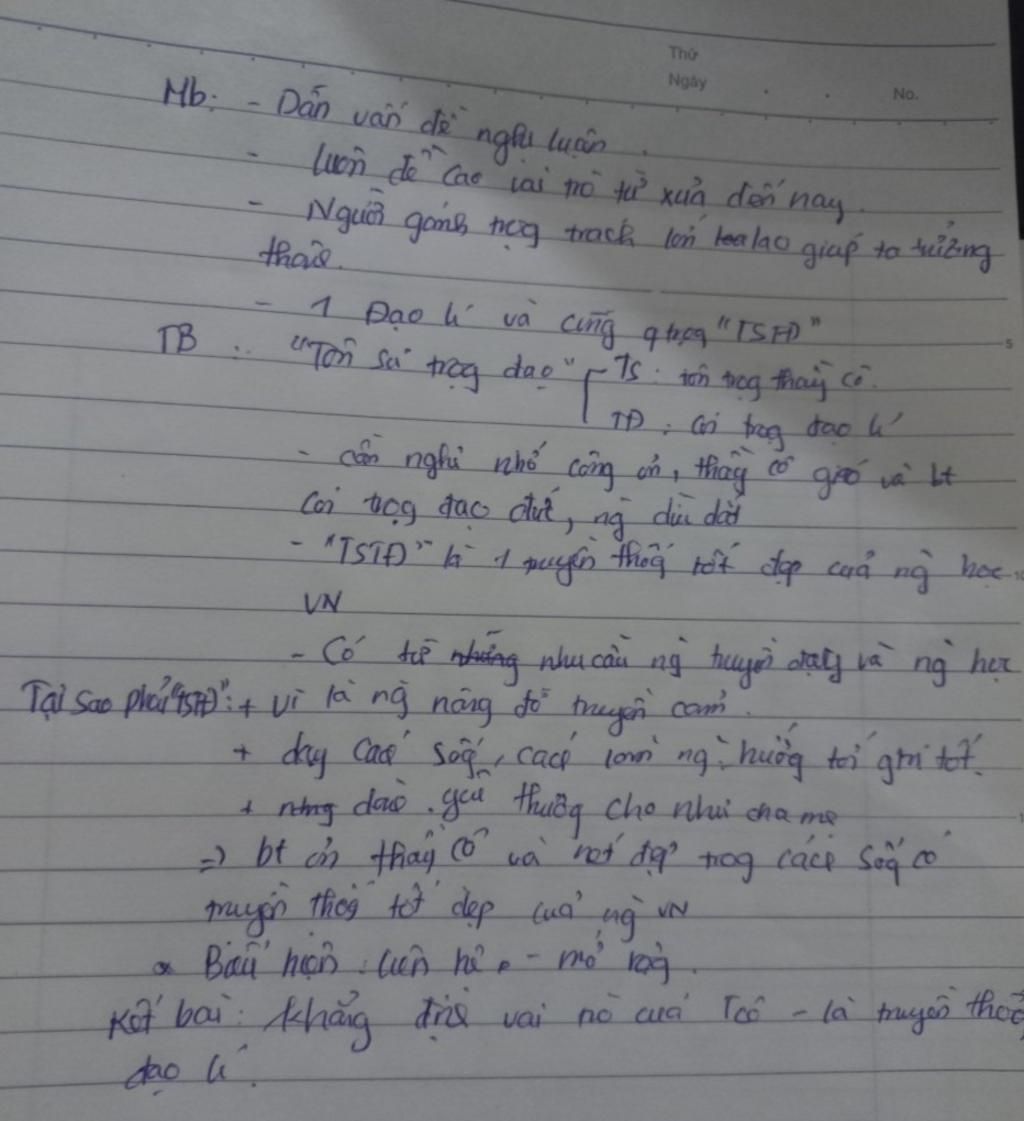 Thứ
Ngày
No.
Mb: - Dẫn vấn đề nghị luận.
- luôn đề cao vai trò từ xưa đến nay.
- Người gánh trọg trách lớn lao giúp ta trưởng
thàh.
- 1 Đạo lí và cũng q trọg "TSTĐ"
5
TB : "Tôn sư trọg đạo" - TS : tôn trọg thầy cô.
TĐ : coi trọg đạo lí
- cần nghi nhớ công ơn, thầy cô giáo và bt
coi trọg đạo đức, ng dìu dắt
- "TSTĐ" là 1 truyền thốg tốt đẹp của ng học
10
VN
- Có từ nhu cầu ng truyền dạy và ng học
Tại sao phải "TSTĐ": + vì là ng nâng đỡ truyền cảm.
+ dạy cách sốg, cách làm ng, hướg tới gtrị tốt.
+ dành yêu thươg cho như cha mẹ
=> bt ơn thầy cô và nét đẹp trog cách sốg có
truyền thốg tốt đẹp của ng VN
Biểu hiện : liên hệ - mở rộg.
Kết bài : khẳng địh vai trò của Tcô - là truyền thốg
đạo lí.